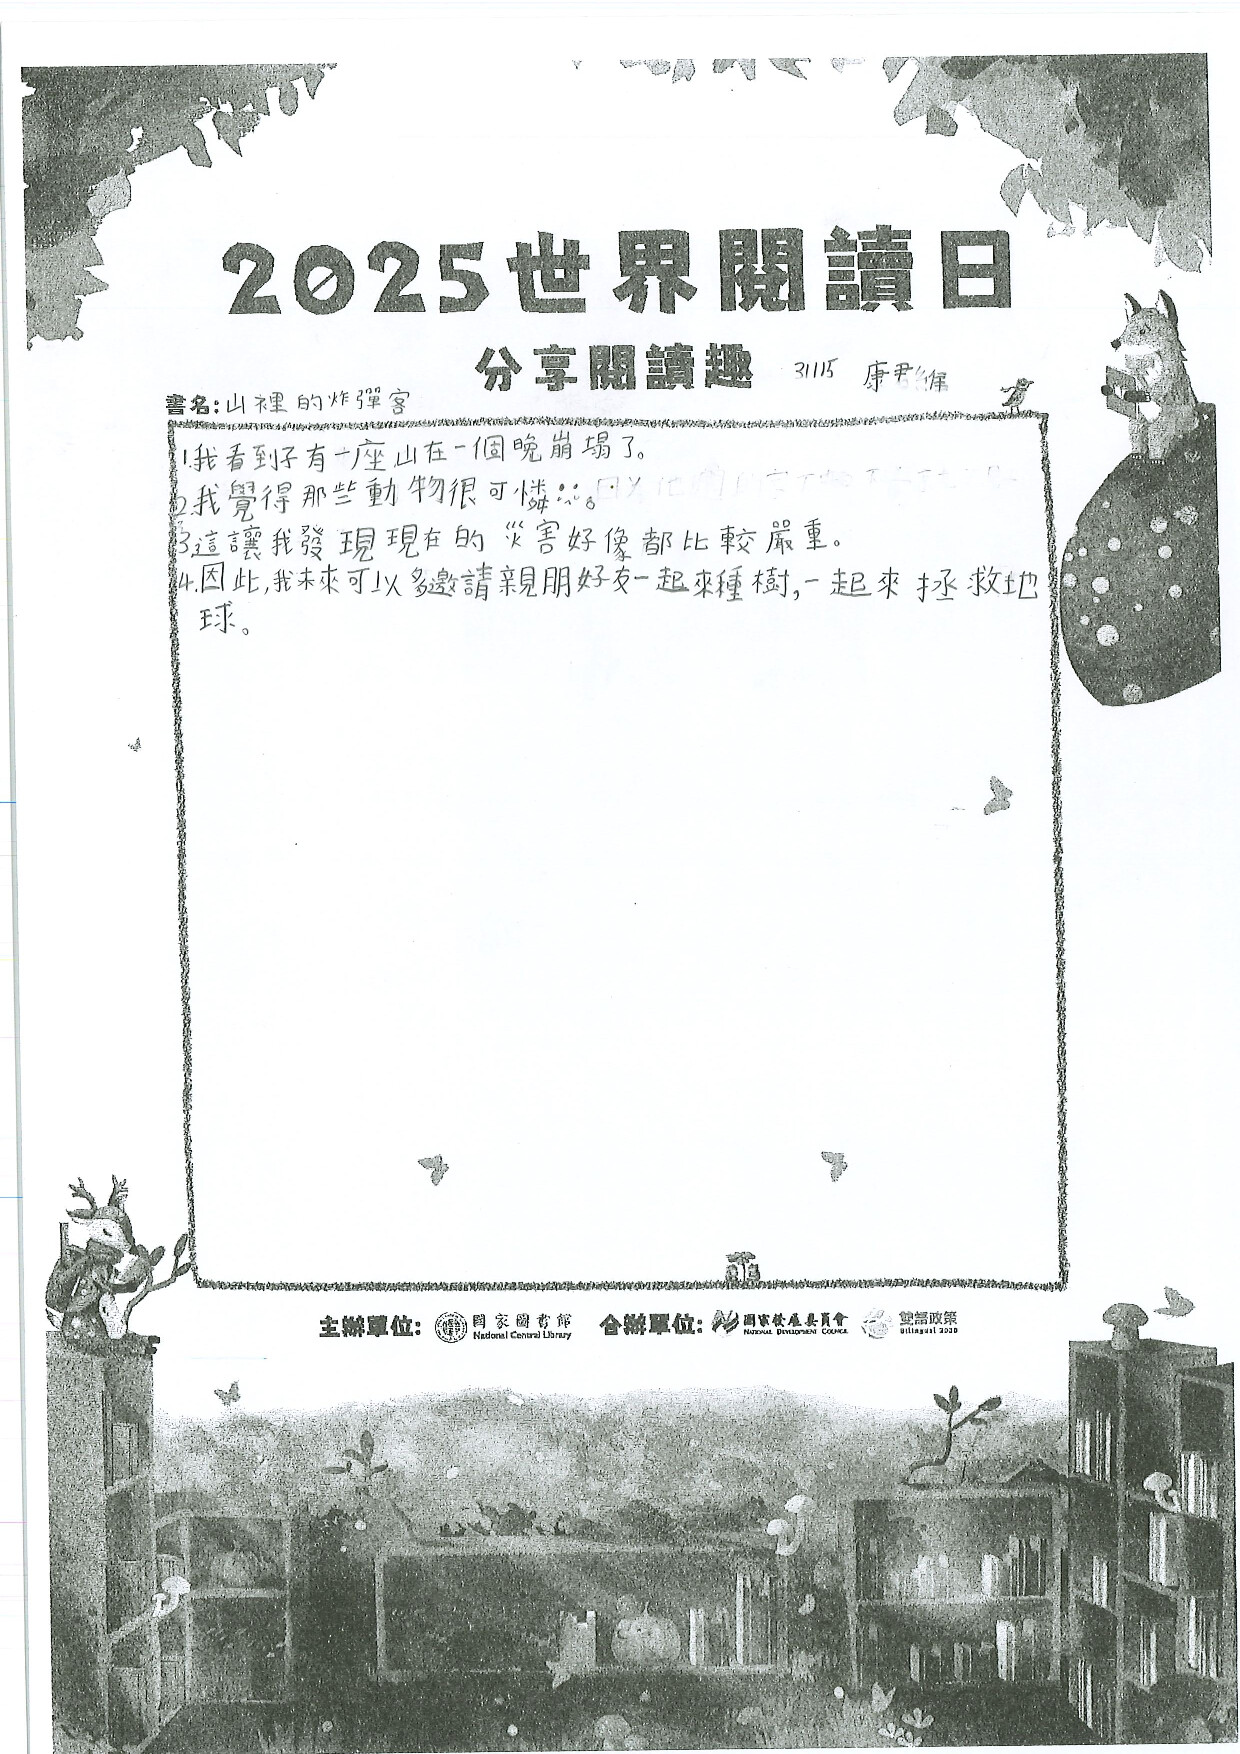 2025世界閱讀日
分享閱讀趣 31115 康君維
書名:山裡的炸彈客
1.我看到子有一座山在一個晚崩塌了。
2.我覺得那些動物很可憐。
3.這讓我發現現在的災害好像都比較嚴重。
4.因此,我未來可以多邀請親朋好友一起來種樹,一起來拯救地
球。
主辦單位: 國家圖書館 National Central Library 合辦單位: 國家發展委員會 NATIONAL DEVELOPMENT COUNCIL 雙語政策 Bilingual 2030